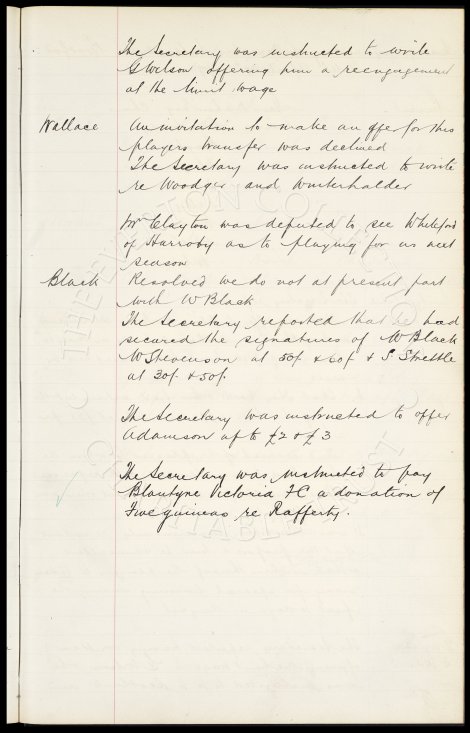 The Secretary was instructed to write
G Wilson offering him a reengagement
at the limit wage
Wallace An invitation to make an offer for this
players transfer was declined
The Secretary was instructed to write
re Woodger and Winterhalder
Mr Clayton was deputed to see Whiteford
of Harroby as to playing for us next
season
Black Resolved we do not at present part
with W Black
The Secretary reported that he had
secured the signatures of W Black
W Stevenson at 50/- & 60/- & S Strettle
at 30/- & 50/-
The Secretary was instructed to offer
Adamson up to £2 & £3
The Secretary was instructed to pay
Blantyre Victoria FC a donation of
Five guineas re Rafferty.